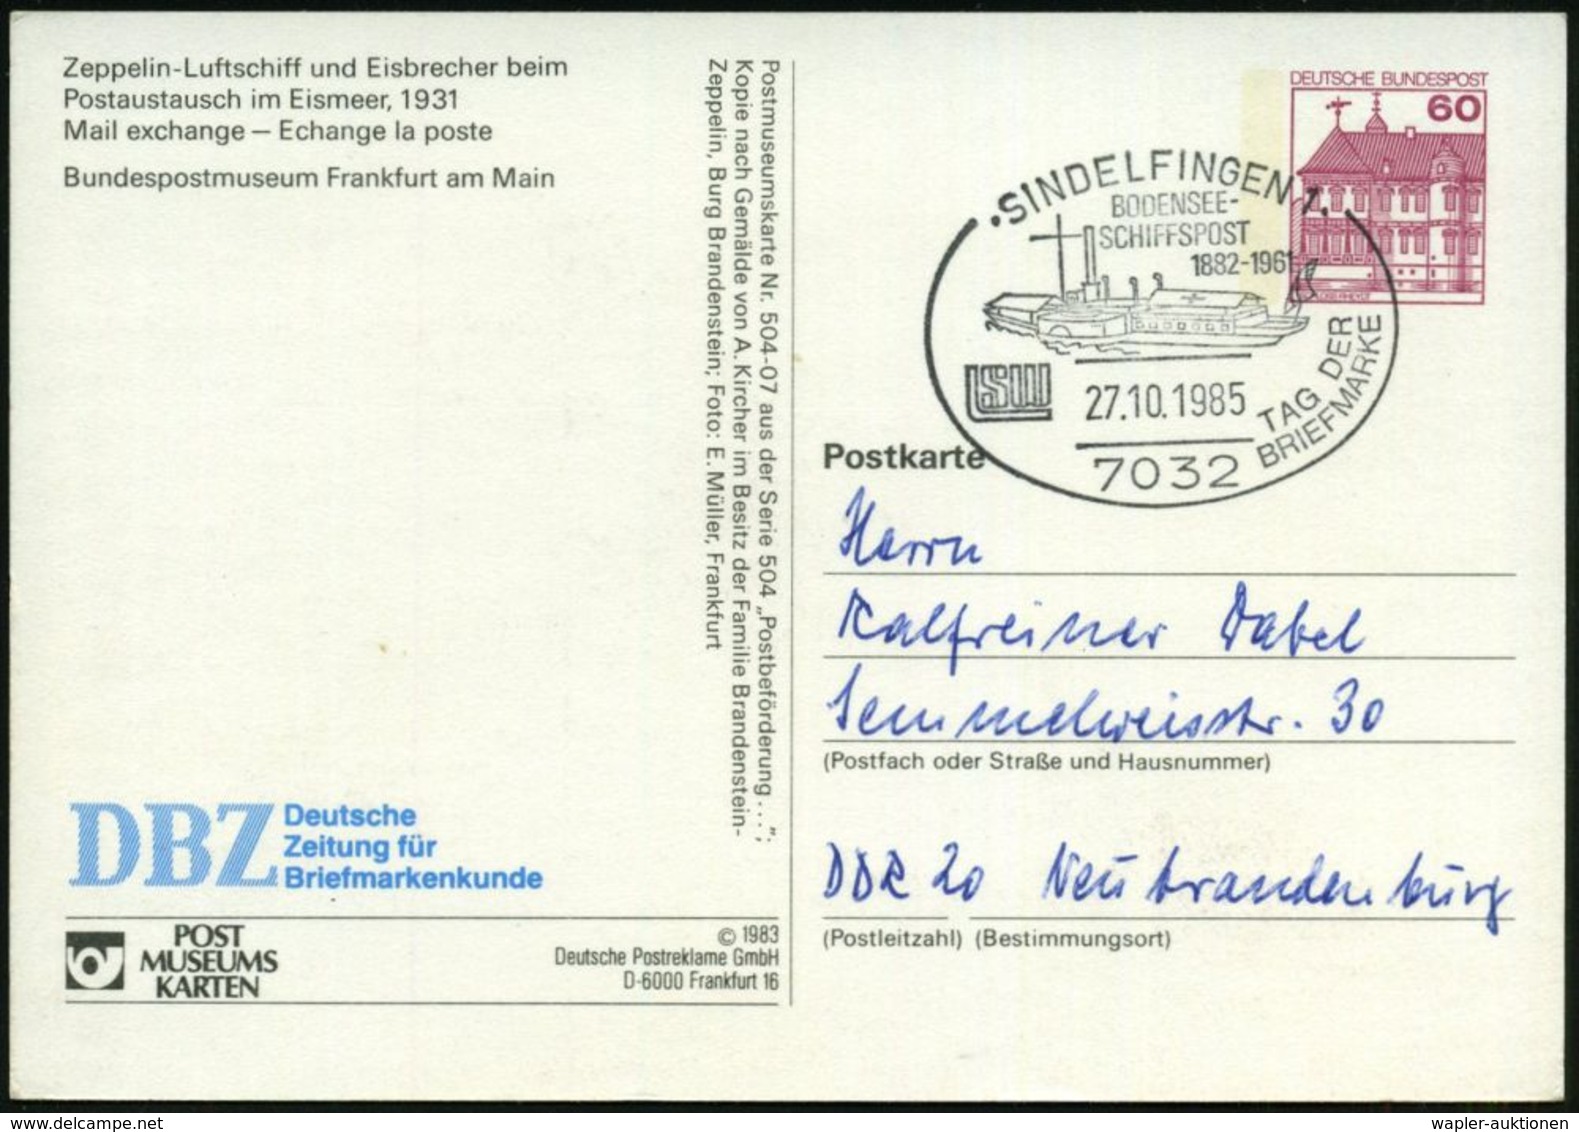 Zeppelin-Luftschiff und Eisbrecher beim
Postaustausch im Eismeer, 1931
Mail exchange — Echange la poste
Bundespostmuseum Frankfurt am Main
Postmuseumskarte Nr. 504-07 aus der Serie 504 „Postbeförderung . . .";
Kopie nach Gemälde von A. Kircher im Besitz der Familie Brandenstein-
Zeppelin, Burg Brandenstein; Foto: E. Müller, Frankfurt
DEUTSCHE BUNDESPOST
60
SINDELFINGEN 1
BODENSEE-
SCHIFFSPOST
1882-1961
27.10.1985
TAG DER
BRIEFMARKE
7032
Postkarte
Herrn
Kalfreiner Dabel
Semmelweisstr. 30
(Postfach oder Straße und Hausnummer)
DDR 20 Neubrandenburg
(Postleitzahl) (Bestimmungsort)
DBZ Deutsche
Zeitung für
Briefmarkenkunde
POST
MUSEUMS
KARTEN
© 1983
Deutsche Postreklame GmbH
D-6000 Frankfurt 16
www.delcampe.net
wapler-auktionen